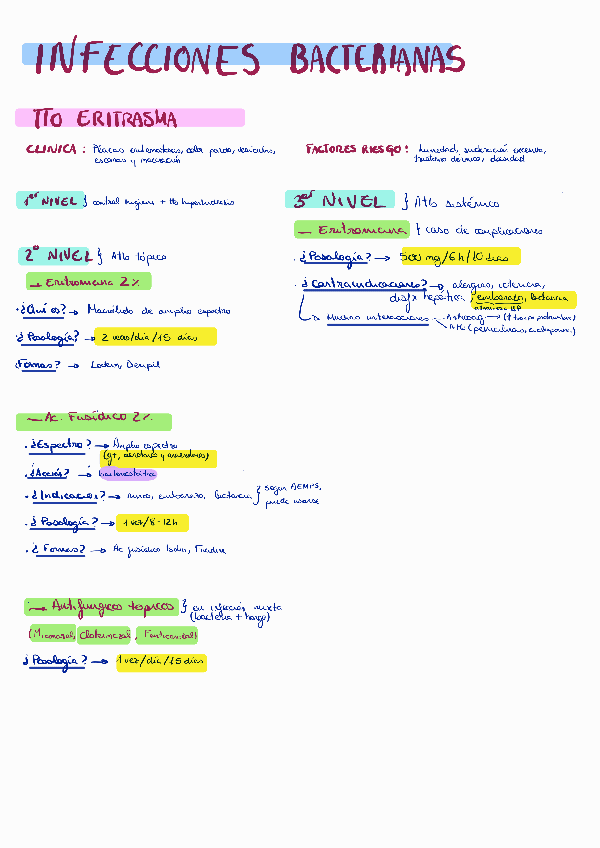 INFECCIONES BACTERIANAS
TTo ERITRASMA
CLINICA : Placas eritematosas, color pardo, vesículas,
escamas y maceración
FACTORES RIESGO : humedad, sudoración excesiva,
obesidad
1er NIVEL } control higiene + tto hiperhidrosis
2º NIVEL } Atb tópico
→ Eritromicina 2%
· ¿Qué es? → Macrólido de amplio espectro
· ¿Posología? → 2 veces/día/15 días
¿Formas? → Loderm,
→ Ac. Fusídico 2%
· ¿Espectro? → Amplio espectro
(g+, aerobios y anaerobios)
· ¿Acción? → bacteriostático
· ¿Indicación? → niños, embarazo, lactancia } según AEMPS,
puede usarse
· ¿Posología? → 1 vez/8-12h
· ¿Formas? → Ac fusídico Isdin, Fucidine
→ Antifúngicos tópicos } en infección mixta
(bacteria + hongo)
(Miconazol, Clotrimazol,
¿Posología? → 1 vez/día/15 días
3er NIVEL } Atb sistémico
→ Eritromicina } caso de complicaciones
· ¿Posología? → 500 mg/6h/10 días
· ¿Contraindicaciones? → alergias, ictericia,
disfx hepática, embarazo, lactancia
→ Muchas interacciones → Anticoag →
Atb (penicilinas,